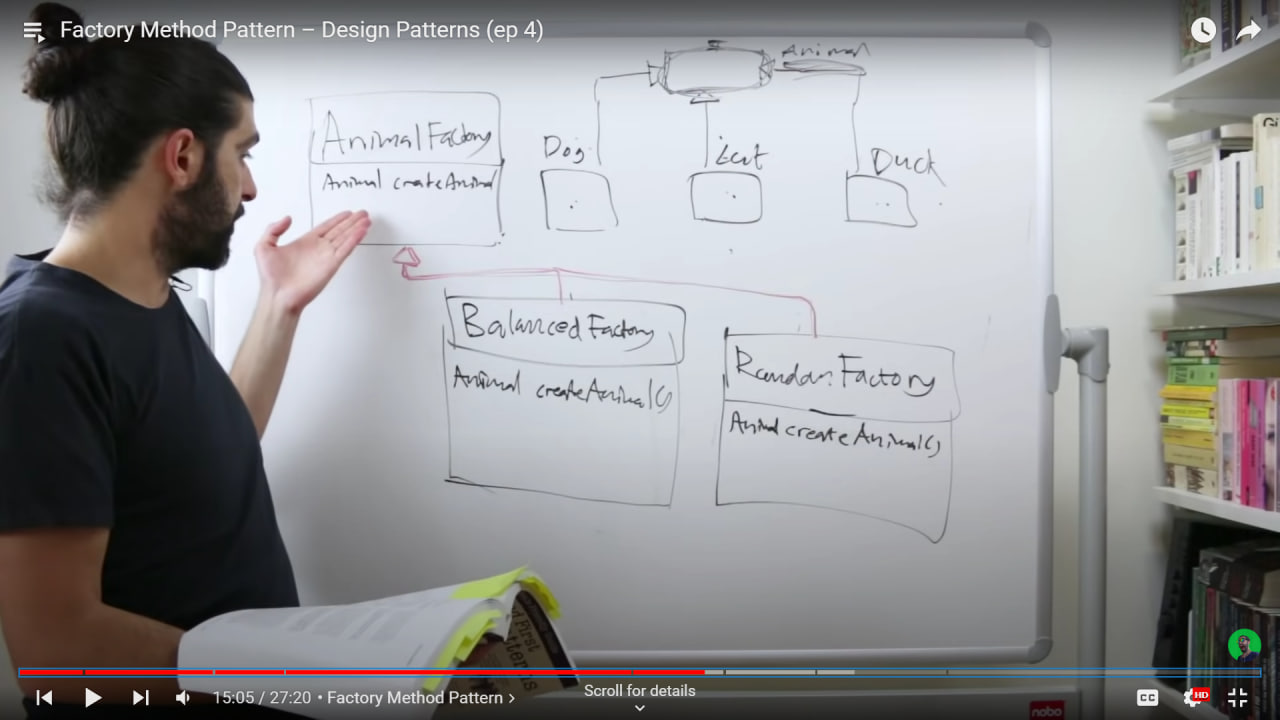 Factory Method Pattern – Design Patterns (ep 4)
Animal
AnimalFactory
Animal createAnimal
Dog
Cat
Duck
BalancedFactory
Animal createAnimal()
RandomFactory
Animal createAnimal()
First
15:05 / 27:20 • Factory Method Pattern ›
Scroll for details
CC
HD
nobo